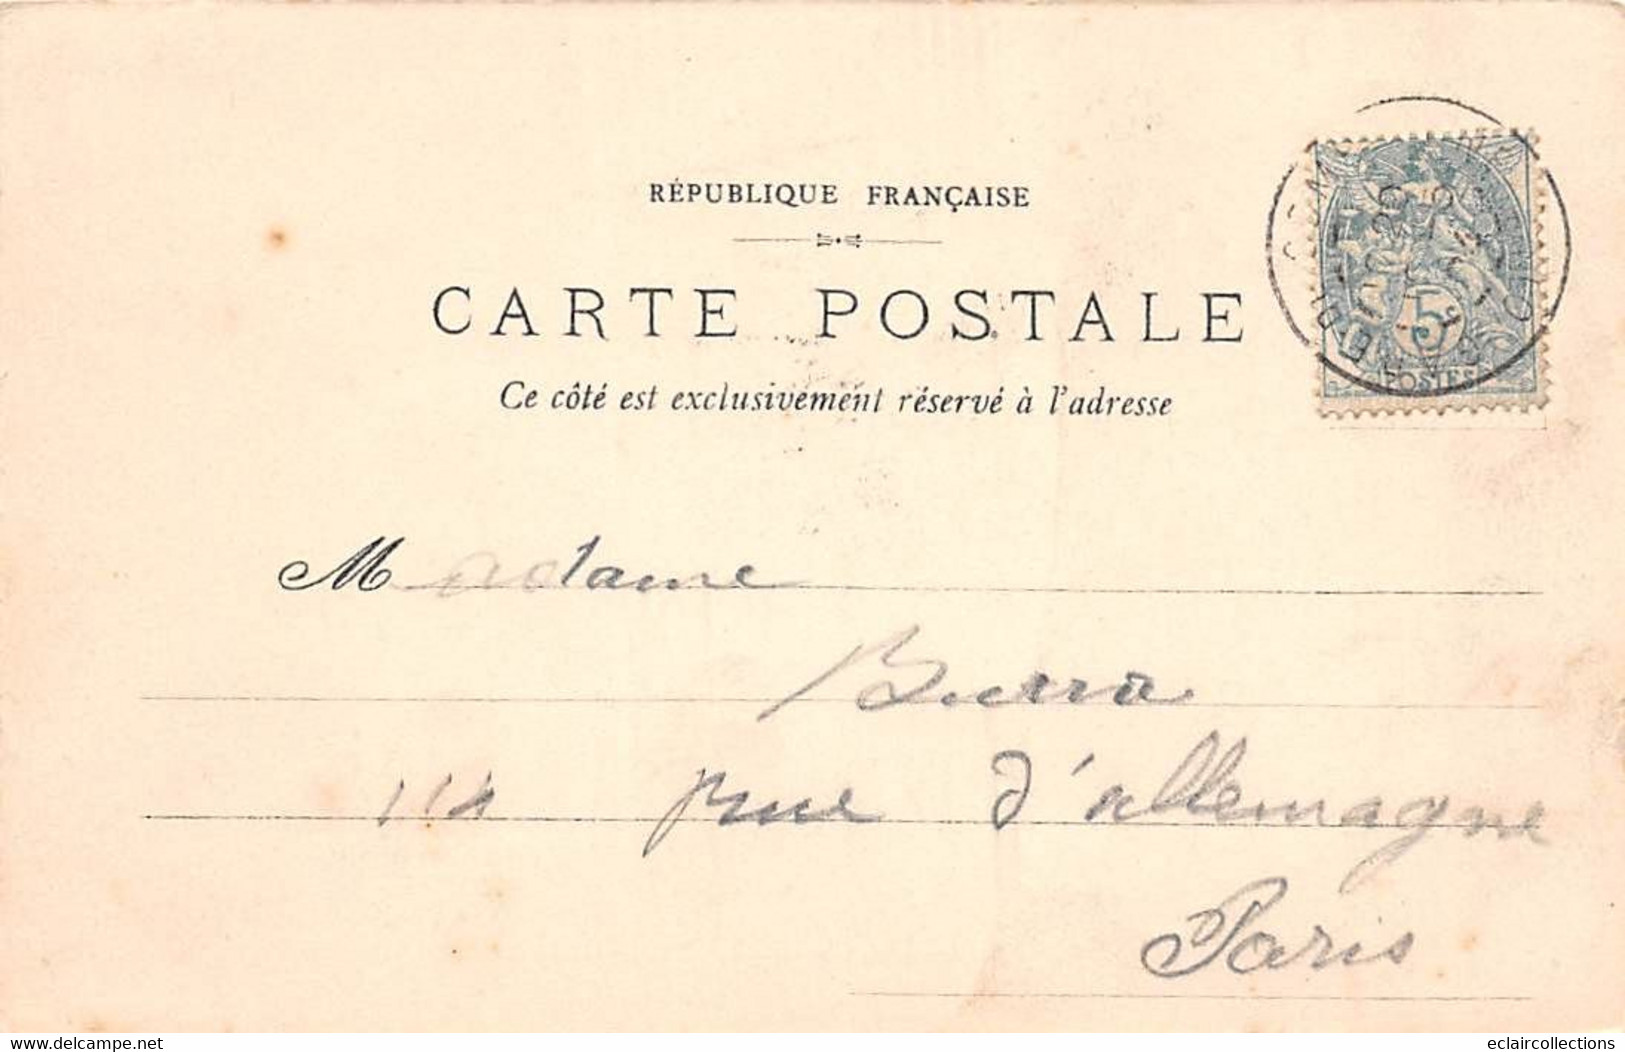 RÉPUBLIQUE FRANÇAISE
CARTE POSTALE
Ce côté est exclusivement réservé à l'adresse
5
POSTES
Madame
114 rue d'allemagne
Paris
Delcampe.net
eclaircollections